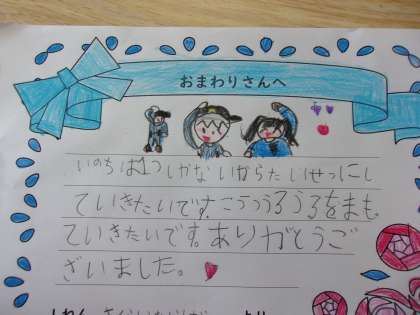 おまわりさんへ
いのちは1つしかないからたいせつにし
ていきたいです。こうつうるうるをまも
ていきたいです。ありがとうご
ざいました。